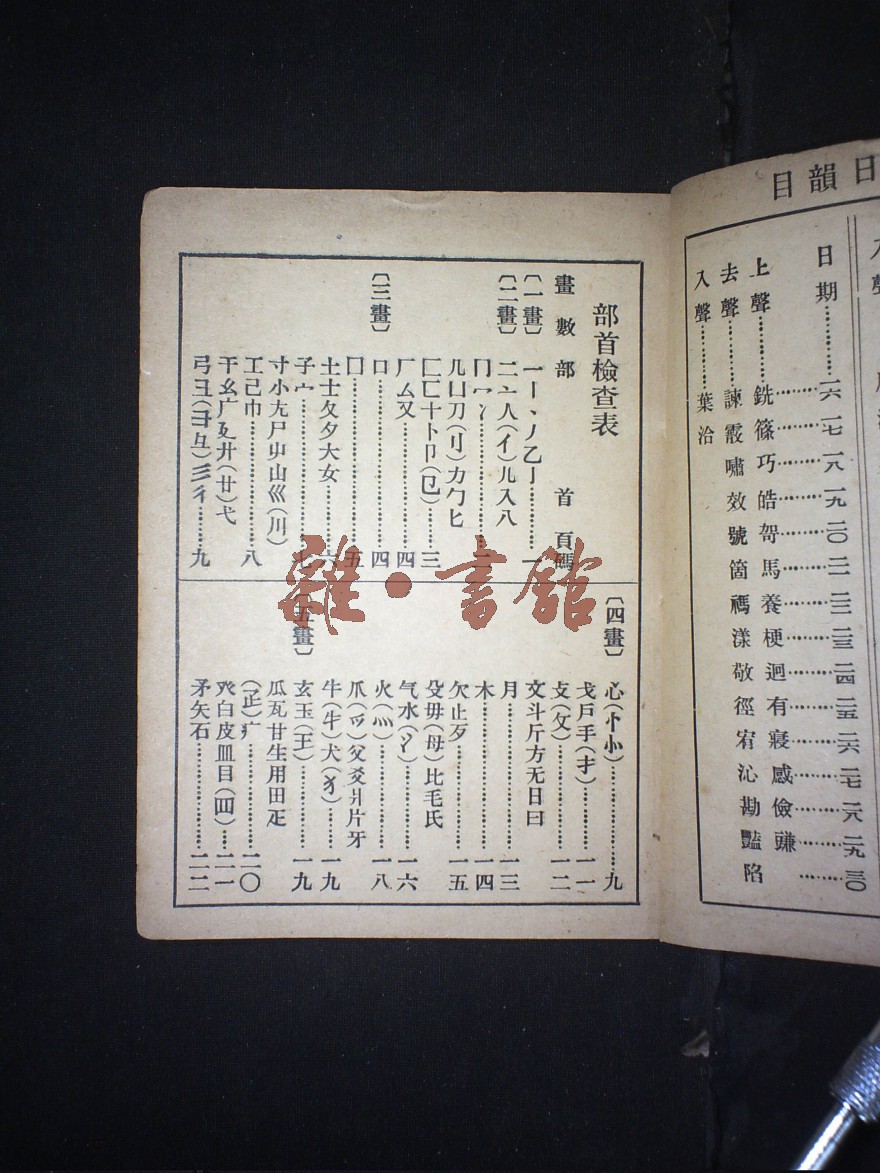 日韻目
日期…………一六 一七 一八 一九 二〇 二一 二二 二三 二四 二五 二六 二七 二八 二九 三〇
上聲………銑 篠 巧 皓 哿 馬 養 梗 迥 有 寢 感 儉 豏
去聲………諫 霰 嘯 效 號 箇 禡 漾 敬 徑 宥 沁 勘 豔 陷
入聲………葉 洽
部首檢查表
畫數部 首頁碼
〔一畫〕 一丨丶丿乙亅………一
〔二畫〕 二亠人(亻)儿入八
冂冖冫………二
几凵刀(刂)力勹匕
匚匸十卜卩(㔾)………三
厂厶又………四
〔三畫〕 口………四
囗………五
土士夂夊大女………六
子宀………七
寸小尢尸屮山巛(川)
工己巾………八
干幺广廴廾(廿)弋
弓彐(彑)彡彳………九
〔四畫〕 心(忄㣺)………九
戈戶手(扌)………一一
攴(攵)………一二
文斗斤方无日曰
月………一三
木………一四
欠止歹………一五
殳毋(母)比毛氏
气水(氵)………一六
火(灬)………一八
爪(爫)父爻爿片牙
牛(牜)犬(犭)………一九
〔五畫〕 玄玉(王)………一九
瓜瓦甘生用田疋
疒………二〇
癶白皮皿目(罒)………二一
矛矢石………二二
雜·書館